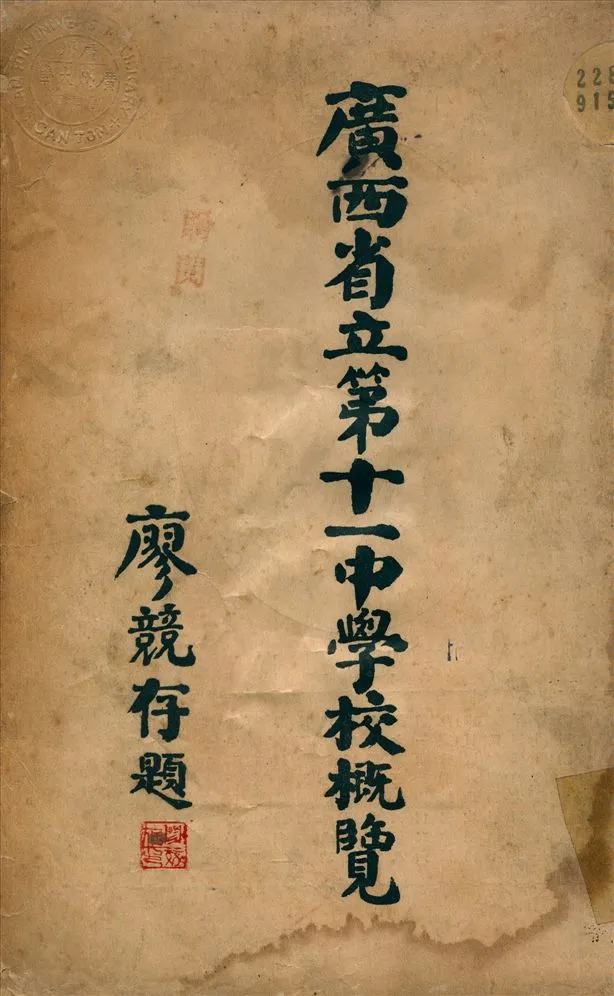 廣西省立第十一中學校概覽
廖競存題
CANTON
228
915